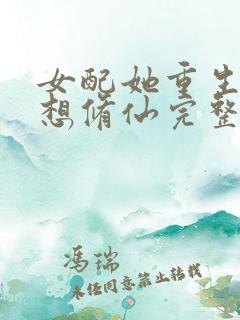 女配她重生
想脩仙完整
冯瑞
未经同意禁止转载